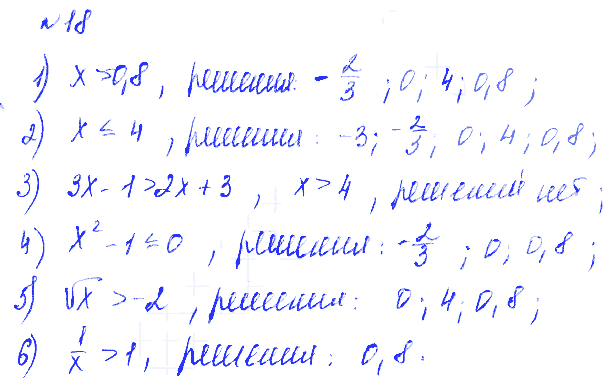 №18
1) x > 0,8, решения: -2/3; 0; 4; 0,8;
2) x ≤ 4, решения: -3; -2/3; 0; 4; 0,8;
3) 3x - 1 > 2x + 3, x > 4, решений нет;
4) x² - 1 ≤ 0, решения: -2/3; 0; 0,8;
5) √x > -2, решения: 0; 4; 0,8;
6) 1/x > 1, решения: 0,8.